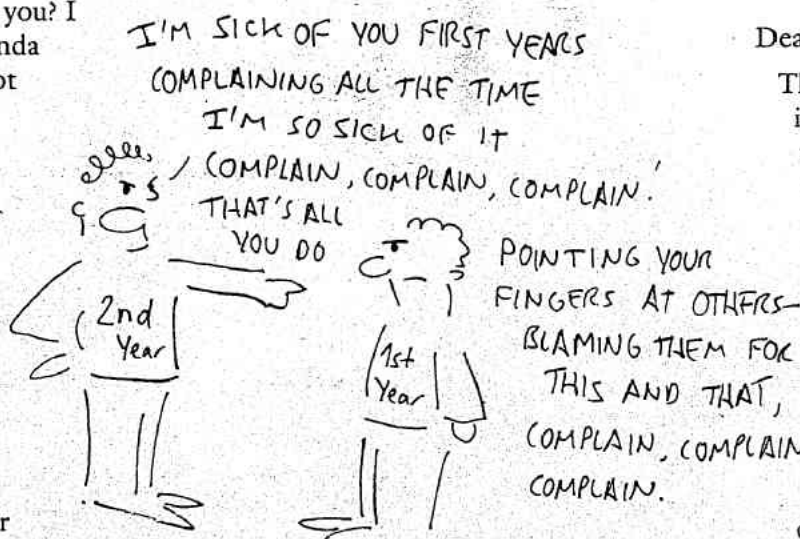 you? I
nda
ot
I'M SICK OF YOU FIRST YEARS
COMPLAINING ALL THE TIME
I'M SO SICK OF IT
COMPLAIN, COMPLAIN, COMPLAIN.
THAT'S ALL
YOU DO
2nd
Year
1st
Year
POINTING YOUR
FINGERS AT OTHERS—
BLAMING THEM FOR
THIS AND THAT,
COMPLAIN, COMPLAIN
COMPLAIN.
r
Dea
Th
i